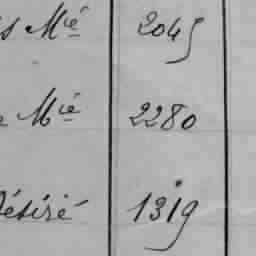 s Mié 2045
e Mié 2280
Désiré 1319